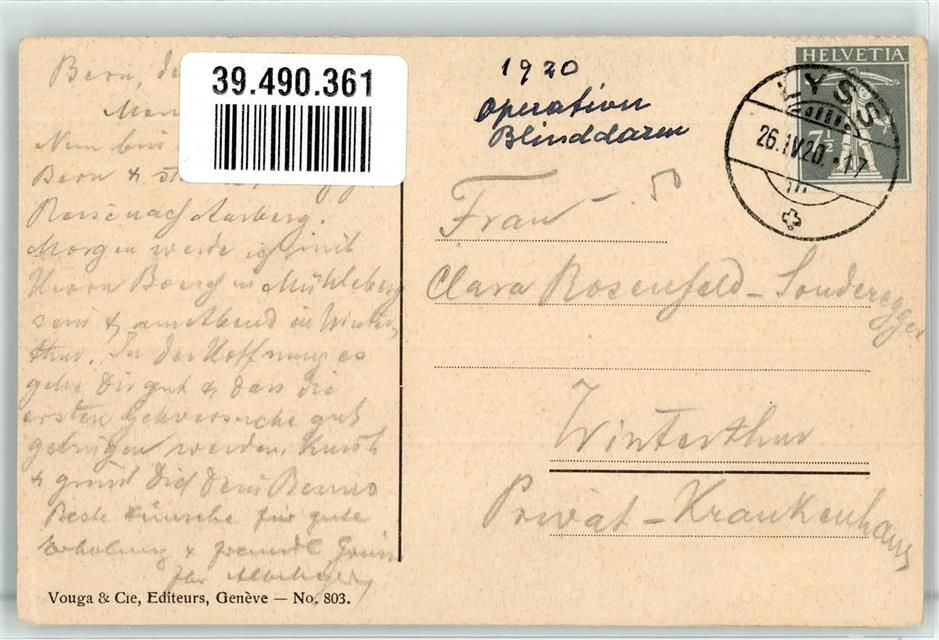 Bern, de
39.490.361
Nun bin
Bern &
Reise nach Aarberg.
Morgen werde ich mit
Herrn Boesch in Mühleberg
sein & am Abend in Winter-
thur. In der Hoffnung es
gehe Dir gut & dass die
ersten Gehversuche gut
gelingen werden, küsst
& grüsst Dich Dein Benno
Beste Wünsche für gute
Erholung & freundl. Gruss
Ihr
Vouga & Cie, Editeurs, Genève — No. 803.
1920
Operation
Blinddarm
HELVETIA
7½
LYSS
26.IV.20.-17
50
Frau
Clara Rosenfeld-Sonderegger
Winterthur
Privat-Krankenhaus